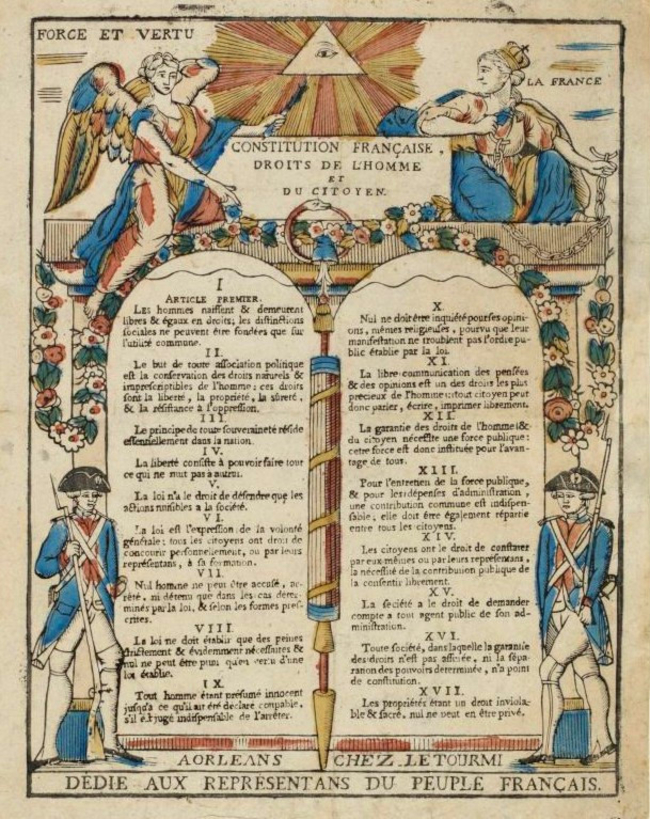 FORCE ET VERTU
LA FRANCE
CONSTITUTION FRANÇAISE,
DROITS DE L'HOMME
ET
DU CITOYEN.
I
ARTICLE PREMIER.
Les hommes naissent & demeurent
libres & égaux en droits; les distinctions
sociales ne peuvent être fondées que sur
l'utilité commune.
II.
Le but de toute association politique
est la conservation des droits naturels &
imprescriptibles de l'homme: ces droits
sont la liberté, la propriété, la sûreté,
& la résistance à l'oppression.
III.
Le principe de toute souveraineté réside
essentiellement dans la nation.
IV.
La liberté consiste à pouvoir faire tout
ce qui ne nuit pas à autrui.
V.
La loi n'a le droit de défendre que les
actions nuisibles a la société.
VI.
La loi est l'expression de la volonté
générale; tous les citoyens ont droit de
concourir personnellement, ou par leurs
représentans, à sa formation.
VII.
Nul homme ne peut être accusé, ar-
rêté, ni détenu que dans les cas déter-
minés par la loi, & selon les formes pres-
crites.
VIII.
La loi ne doit établir que des peines
strictement & évidemment nécessaires &
nul ne peut être puni qu'en vertu d'une
loi établie.
IX.
Tout homme étant présumé innocent
jusqu'a ce qu'il ait été déclaré coupable,
s'il est jugé indispensable de l'arrêter.
X.
Nul ne doit être inquiété pour ses opini-
ons, mêmes religieuses, pourvu que leur
manifestation ne troublent pas l'ordre pu-
blic établie par la loi.
XI.
La libre communication des pensées
& des opinions est un des droits les plus
précieux de l'homme: tout citoyen peut
donc parler, écrire, imprimer librement.
XII.
La garantie des droits de l'homme &
du citoyen nécessite une force publique:
cette force est donc instituée pour l'avan-
tage de tous.
XIII.
Pour l'entretien de la force publique,
& pour les dépenses d'administration,
une contribution commune est indispen-
sable; elle doit être également répartie
entre tous les citoyens.
XIV.
Les citoyens ont le droit de constater
par eux-mêmes ou par leurs représentans,
la nécessité de la contribution publique de
la consentir librement.
XV.
La société a le droit de demander
compte a tout agent public de son ad-
ministration.
XVI.
Toute société, dans laquelle la garantie
des droits n'est pas assurée, ni la sépa-
ration des pouvoirs déterminée, n'a point
de constitution.
XVII.
Les propriétés étant un droit inviola-
ble & sacré, nul ne peut en être privé.
A ORLEANS CHEZ LETOURMI
DÉDIE AUX REPRÉSENTANS DU PEUPLE FRANÇAIS.